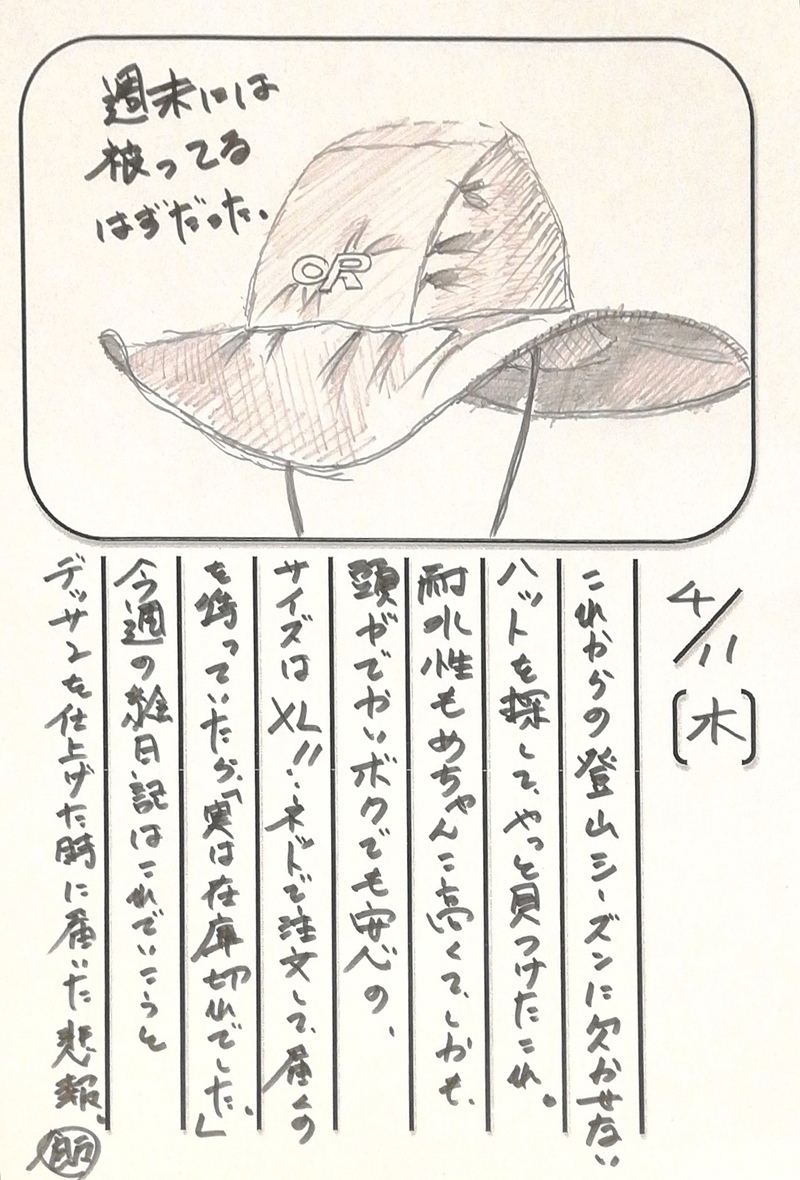 週末には
被ってる
はずだった。
OR
4/11
[木]
これからの登山シーズンに欠かせない
ハットを探して、やっと見つけたこれ。
耐水性もめちゃんこ高くて、しかも、
頭がでかいボクでも安心の、
サイズはXL!!…ネットで注文して、届くの
を待っていたら、「実は在庫切れでした。」
今週の絵日記はこれでいこうと
デッサンを仕上げた時に届いた悲報。